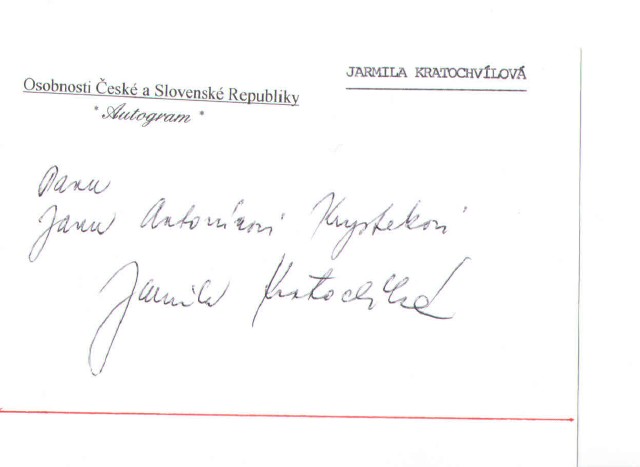 JARMILA KRATOCHVÍLOVÁ
Osobnosti České a Slovenské Republiky
* Autogram *
Panu
Janu Antonínovi Krystekovi
Jarmila Kratochvílová